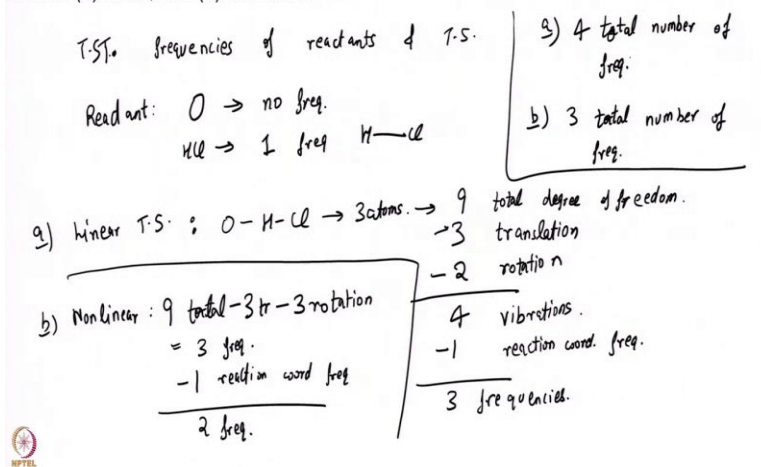 T.ST. frequencies of reactants & T.S.
Readant: O → no freq.
HCl → 1 freq H—Cl
a) 4 total number of
freq.
b) 3 total number of
freq.
a) Linear T.S. : O - H - Cl → 3 atoms. → 9 total degree of freedom.
-3 translation
-2 rotation
4 vibrations.
-1 reaction coord. freq.
3 frequencies.
b) Nonlinear : 9 total - 3 tr - 3 rotation
= 3 freq.
-1 reaction coord freq
2 freq.
NPTEL